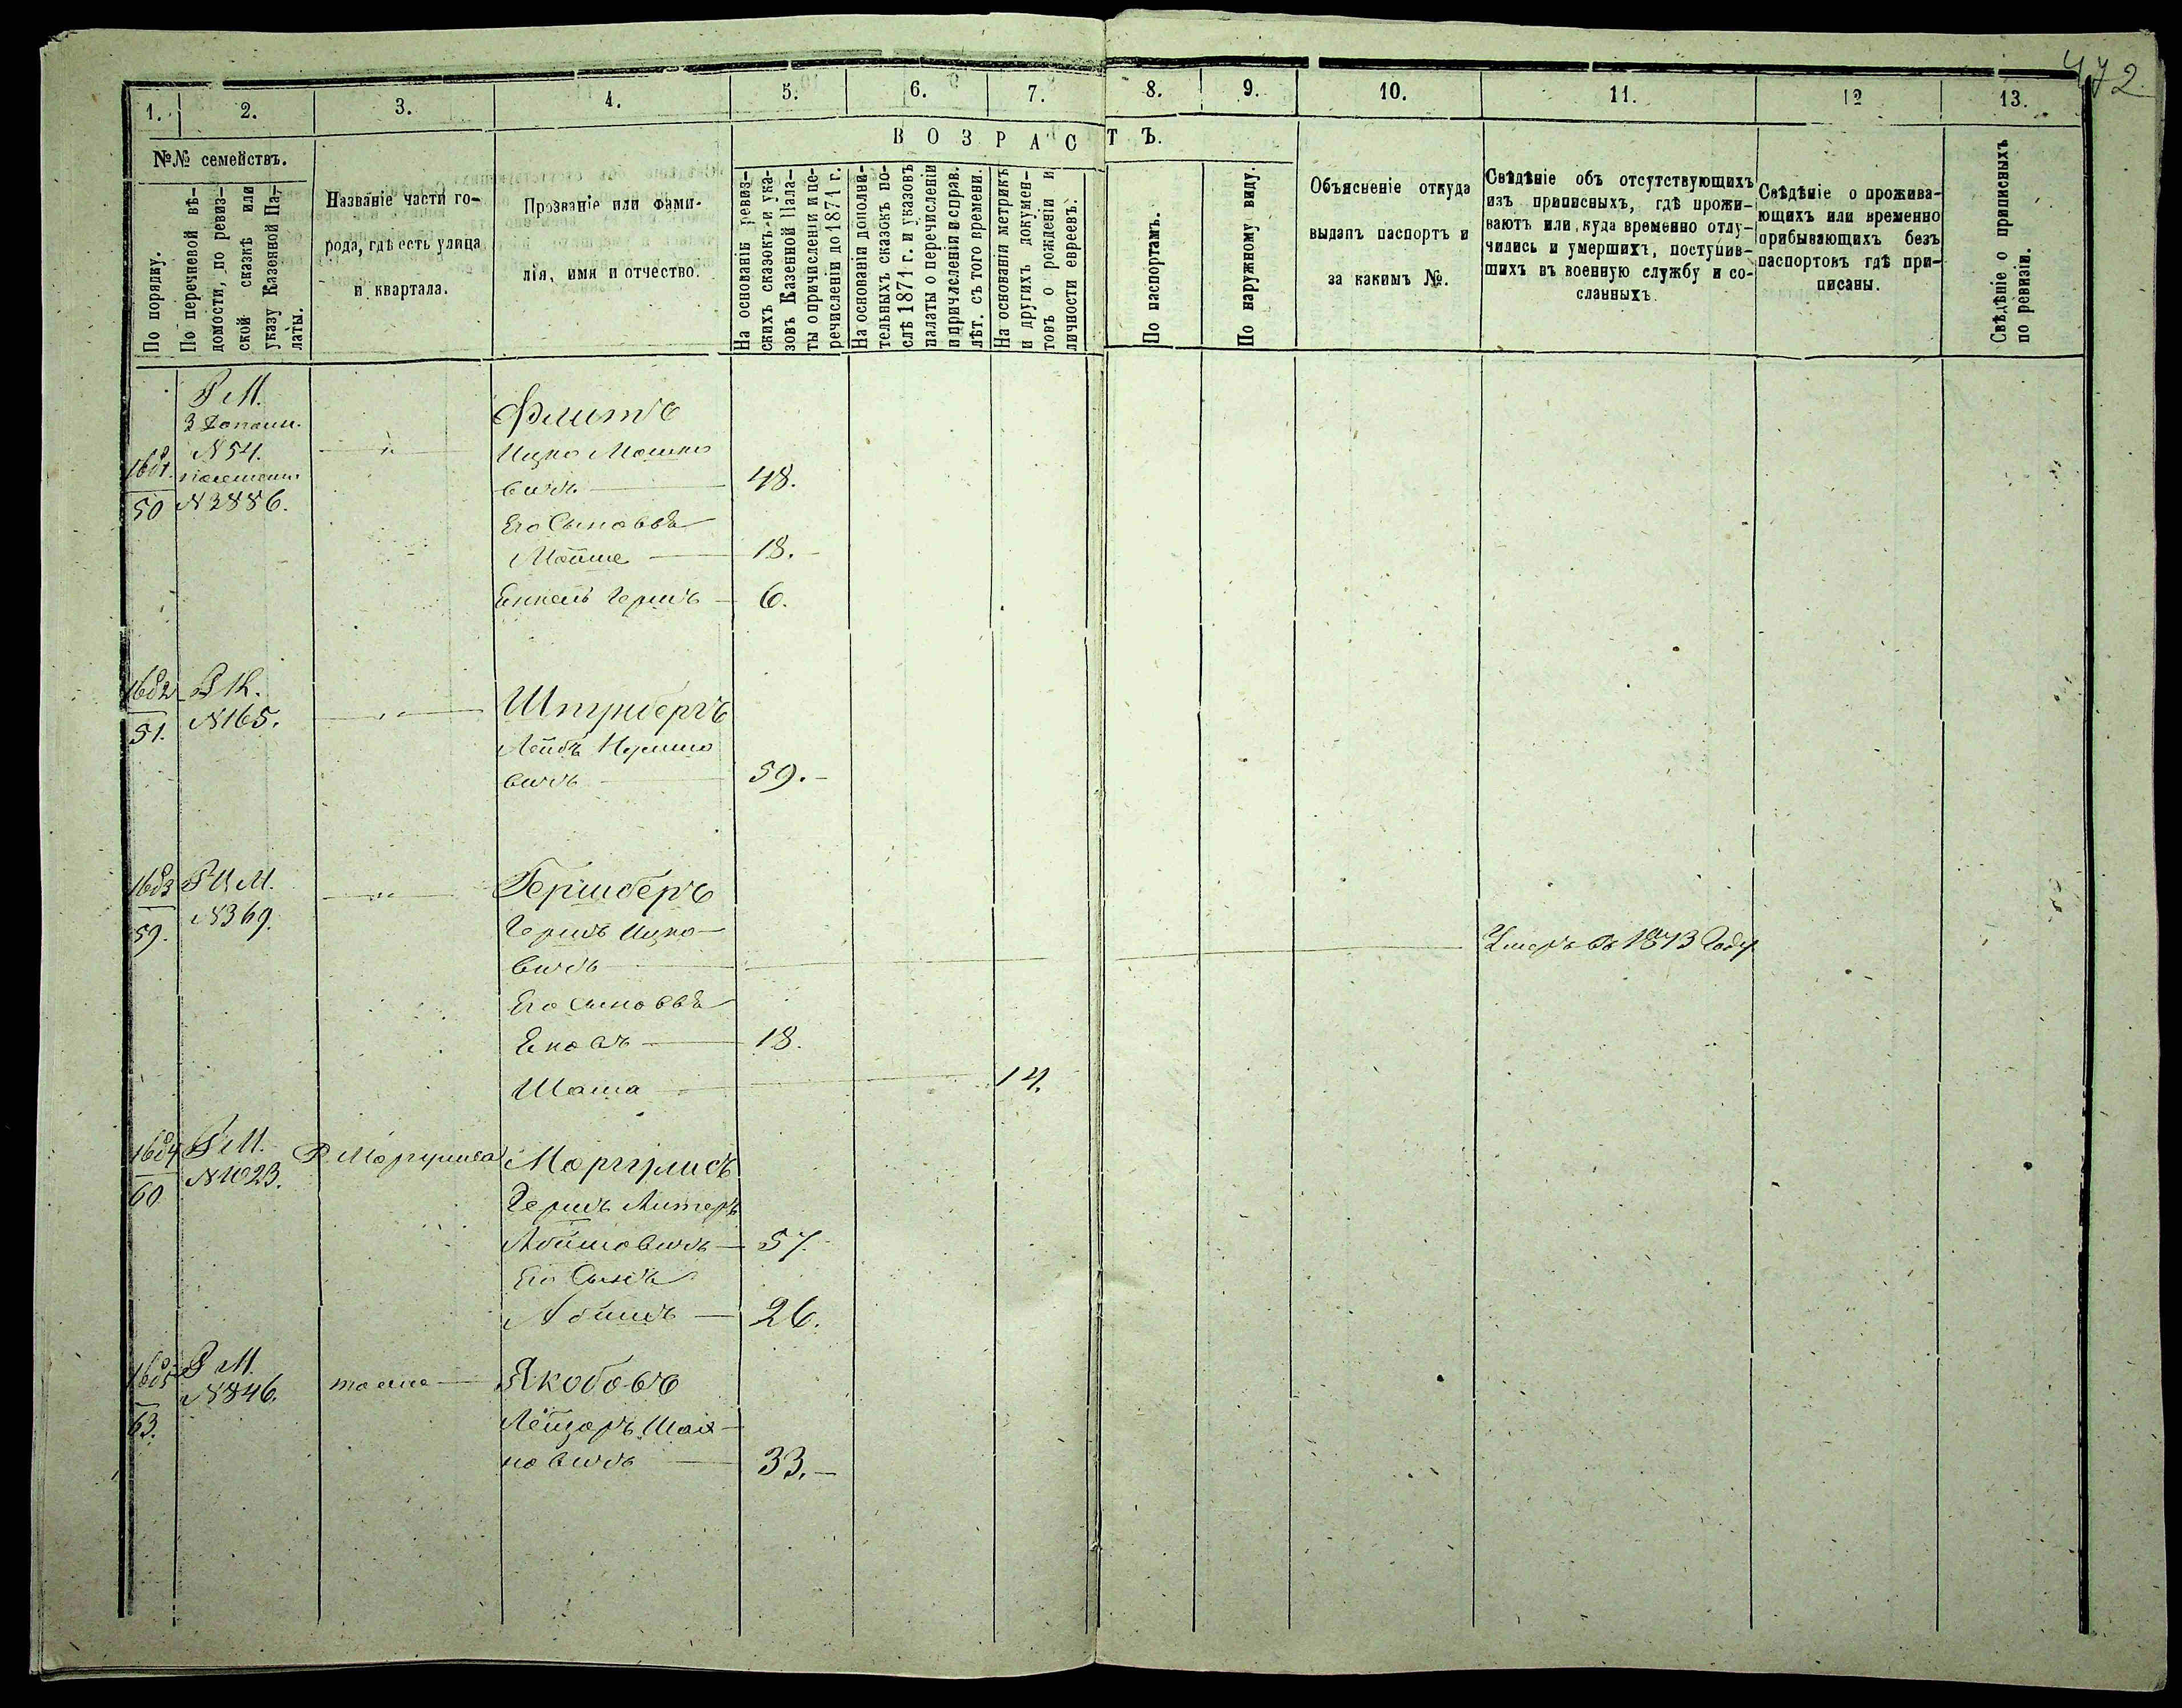 472
1.
2.
3.
4.
5.
6.
7.
8.
9.
10.
11.
12
13.
№№ семействъ.
По порядку.
По перечневой вѣ-
домости, по ревиз-
ской сказкѣ или
указу Казенной Па-
латы.
Названіе части го-
рода, гдѣ есть улица
и квартала.
Прозваніе или фами-
лія, имя и отчество.
ВОЗРАСТЪ.
На основаніи ревиз-
скихъ сказокъ и ука-
зовъ Казенной Пала-
ты о причисленіи и пе-
речисленіи до 1871 г.
На основаніи дополни-
тельныхъ сказокъ по-
слѣ 1871 г. и указовъ
палаты о перечисленіи
и причисленіи и справ.
лѣт. съ того времени.
На основаніи метрикъ
и другихъ докумен-
товъ о рожденіи и
личности евреевъ.
По паспортамъ.
По наружному виду.
Объясненіе откуда
выданъ паспортъ и
за какимъ №.
Свѣдѣніе объ отсутствующихъ
изъ приписныхъ, гдѣ прожи-
ваютъ или, куда временно отлу-
чились и умершихъ, поступив-
шихъ въ военную службу и со-
сланныхъ.
Свѣдѣніе о прожива-
ющихъ или временно
прибывающихъ безъ
паспортовъ гдѣ при-
писаны.
Свѣдѣніе о приписныхъ
по ревизіи.
Р М.
3 Дополн.
N 54.
N 3886.
50
Флитъ
Ицко Мошко
вичъ — 48.
Его Сыновья
Мойше — 18.
Янкель Гершъ — 6.
1652
51.
Р К.
N 165.
Штрубергъ
Лейбъ
вичъ — 59.
1653
59.
Р Ц М.
N 369.
Гершберъ
Гершъ Ицко-
вичъ — Умеръ въ 1873 Году
Его сыновья
Яковъ — 18.
Шама — 14.
1654
60
Р М.
N 1023.
Р. Маргулиса
Маргулисъ
Гершъ Алтеръ
Абишовичъ — 57.
Его Сынъ
Абишъ — 26.
1655
63.
Р М
N 846.
тоже —
Якобовъ
Лейзоръ Шах-
новичъ — 33.